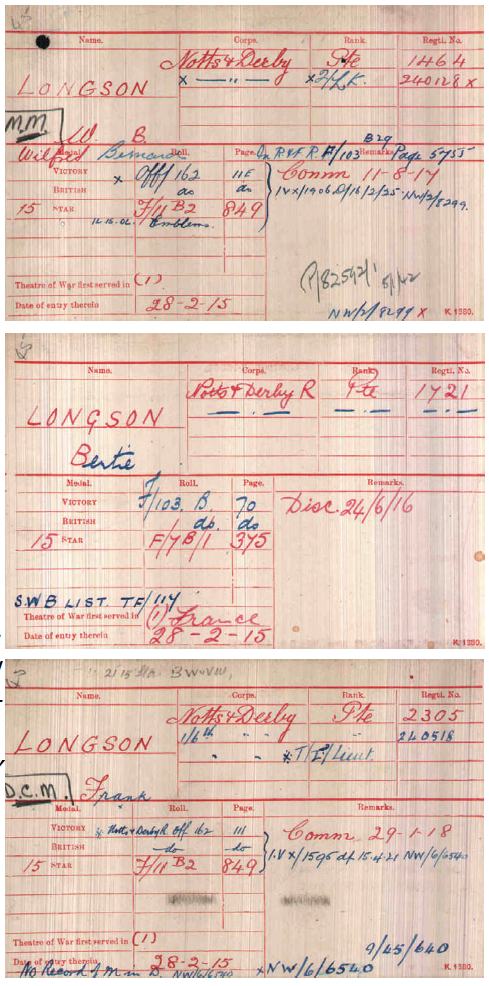 Name. Corps. Rank. Regtl. No.
Notts & Derby Pte 1464
LONGSON x — " — x 240128 x
M.M.
W. B.
Wilfred Bernard
Medal. Roll. Page. In R & F R. F/103 B29 Remarks. Page 5755
VICTORY x Off/162 11E Comm 11-8-17
BRITISH do do IVX/1906 D/16/2/25. NW/2/8299.
15 STAR F/11 B2 849
Emblems.
(P/82592/1 5/42
Theatre of War first served in (1)
Date of entry therein 28-2-15
NW/2/8299 x K. 1380.
Name. Corps. Rank. Regtl. No.
Notts & Derby R Pte 1721
LONGSON — " — — " — — " —
Bertie
Medal. Roll. Page. Remarks.
VICTORY F/103. B. 70 Disc. 24/6/16
BRITISH do. do
15 STAR F/7B/1 375
S.W.B LIST. TF/114
Theatre of War first served in (1) France
Date of entry therein 28-2-15
K. 1380.
21 15 Sta. BW & VM,
Name. Corps. Rank. Regtl. No.
Notts & Derby Pte 2305
LONGSON 1/6th " " " 240518
" " x T/2/Lieut.
D.C.M. Frank
Medal. Roll. Page. Remarks.
VICTORY x Notts & Derby R Off 162 111 Comm 29-1-18
BRITISH do do I.V X/1595 df 15.4.21 NW/6/6540
15 STAR F/11 B2 849
Theatre of War first served in (1)
9/45/640
Date of entry therein 28-2-15
No Record of M in D. NW/6/6540 x NW/6/6540 K. 1380.